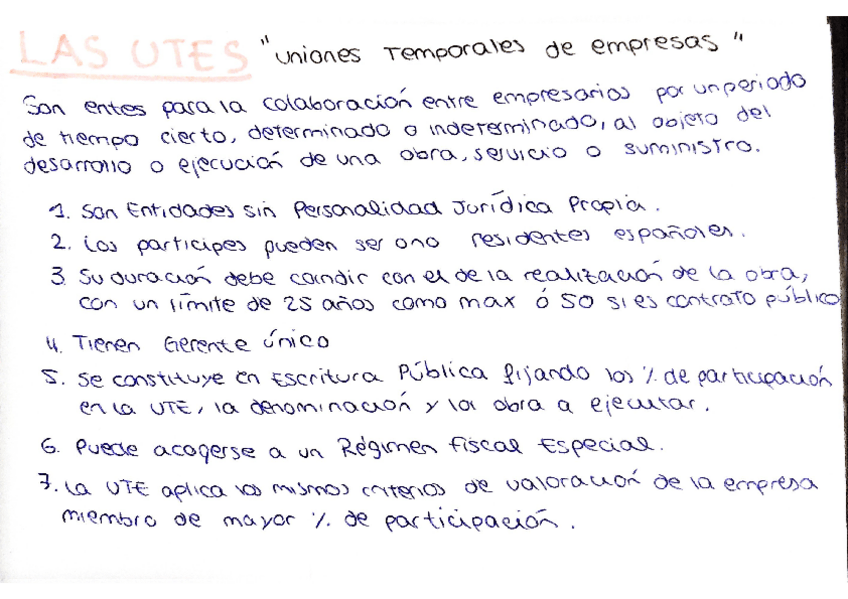 LAS UTES "Uniones Temporales de empresas"
Son entes para la colaboración entre empresarios por un periodo
de tiempo cierto, determinado o indeterminado, al objeto del
desarrollo o ejecución de una obra, servicio o suministro.
1. Son Entidades sin Personalidad Jurídica Propia.
2. Los participes pueden ser o no residentes españoles.
3. Su duración debe coindir con el de la realización de la obra,
con un límite de 25 años como max ó 50 si es contrato público
4. Tienen Gerente único
5. Se constituye en Escritura Pública fijando los % de participación
en la UTE, la denominación y la obra a ejecutar.
6. Puede acogerse a un Régimen Fiscal Especial.
7. La UTE aplica los mismos criterios de valoración de la empresa
miembro de mayor % de participación.